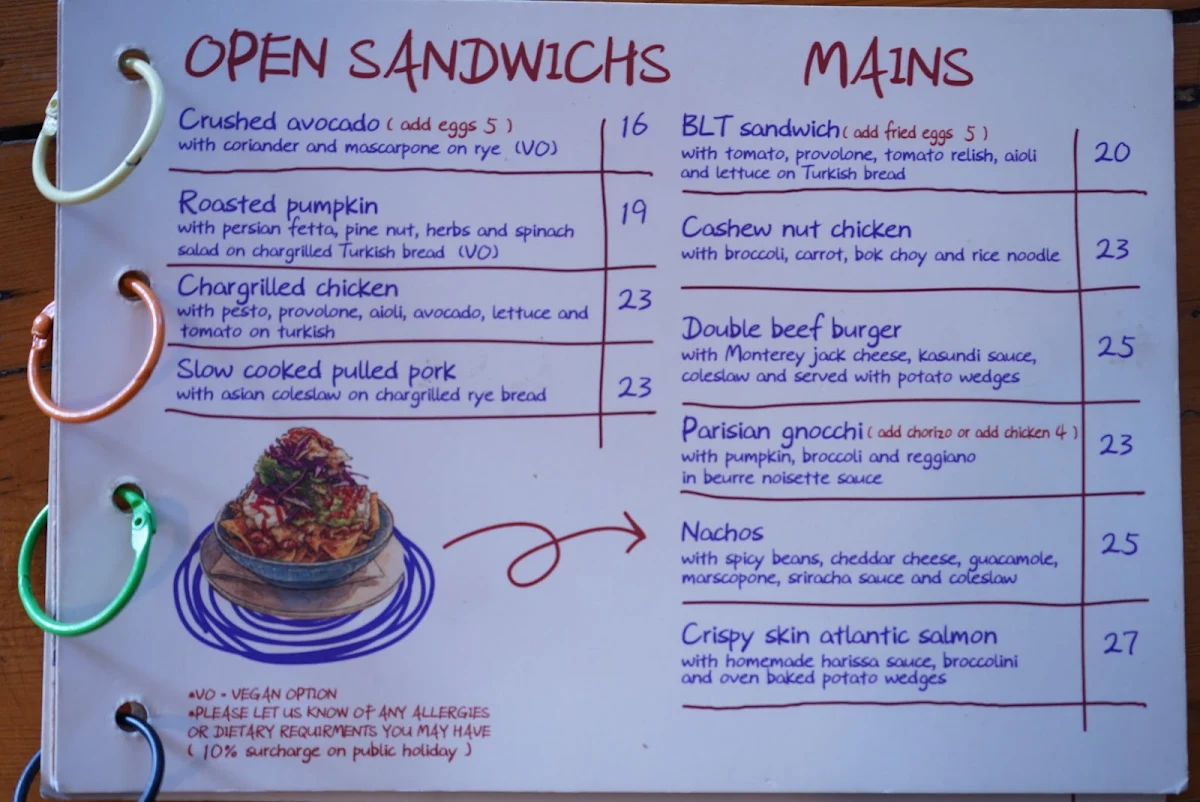 OPEN SANDWICHS
Crushed avocado ( add eggs 5 ) 16
with coriander and mascarpone on rye (VO)
Roasted pumpkin 19
with persian fetta, pine nut, herbs and spinach
salad on chargrilled Turkish bread (VO)
Chargrilled chicken 23
with pesto, provolone, aioli, avocado, lettuce and
tomato on turkish
Slow cooked pulled pork 23
with asian coleslaw on chargrilled rye bread
*VO - VEGAN OPTION
*PLEASE LET US KNOW OF ANY ALLERGIES
OR DIETARY REQUIRMENTS YOU MAY HAVE
( 10% surcharge on public holiday )
MAINS
BLT sandwich ( add fried eggs 5 ) 20
with tomato, provolone, tomato relish, aioli
and lettuce on Turkish bread
Cashew nut chicken 23
with broccoli, carrot, bok choy and rice noodle
Double beef burger 25
with Monterey jack cheese, kasundi sauce,
coleslaw and served with potato wedges
Parisian gnocchi ( add chorizo or add chicken 4 ) 23
with pumpkin, broccoli and reggiano
in beurre noisette sauce
Nachos 25
with spicy beans, cheddar cheese, guacamole,
marscopone, sriracha sauce and coleslaw
Crispy skin atlantic salmon 27
with homemade harissa sauce, broccolini
and oven baked potato wedges